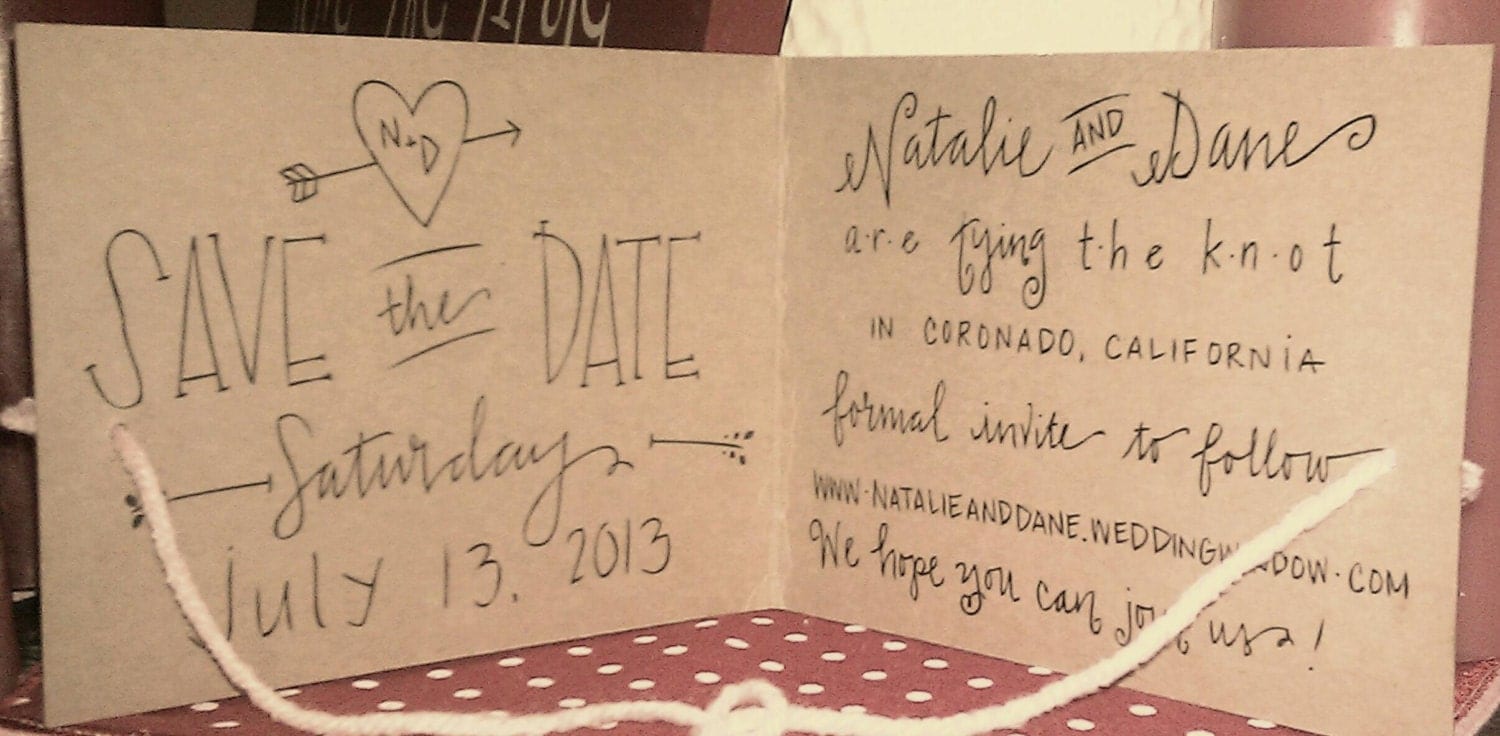 N+D
SAVE the DATE
Saturday
July 13. 2013
Natalie AND Dane
a·r·e tying t·h·e k·n·o t
IN CORONADO, CALIFORNIA
formal invite to follow
WWW·NATALIEANDDANE.WEDDINGWINDOW·COM
We hope you can join us!